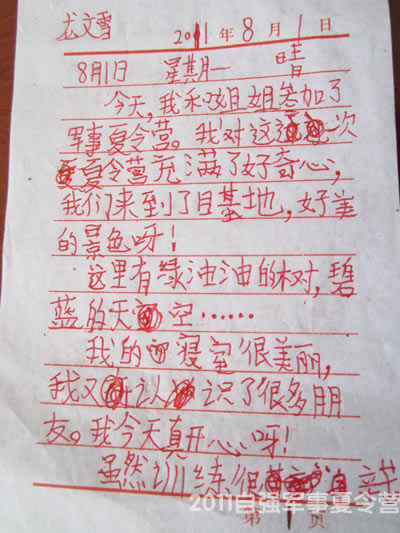 尤文雪
2011年8月1日
8月1日 星期一 晴
今天,我和姐姐参加了
军事夏令营。我对这次
夏令营充满了好奇心,
我们来到了目基地,好美
的景色呀!
这里有绿油油的树,碧
蓝的天空……
我的寝室很美丽,
我又认识了很多朋
友。我今天真开心呀!
虽然训练很
2011自强军事夏令营
第1页